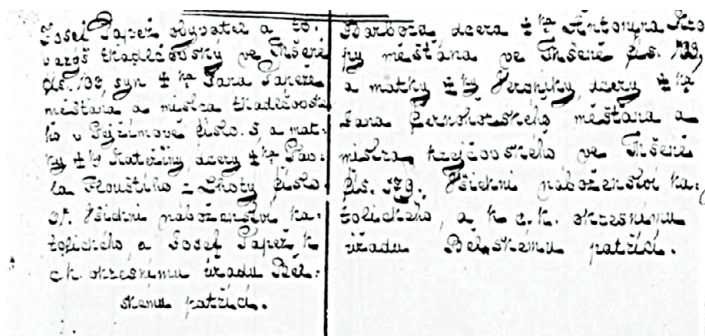 Josef Papež obyvatel a to-
varyš tkadlcovský ve Mšeně
čís. 133, syn † ka Jana Papeže
měštana a mistra tkadlcovs-
ko v číslo. 5 a mat-
ky † ky Kateřiny, dcery † ka Pav-
la z Lhoty číslo
Všickni náboženství ka-
tolického a Josef Papež k
c k. okresnímu úřadu Běl-
skému patřící.
Barbora, dcera † ka Antonína
py měštana ve Mšeně čís. 129,
a matky † ky Veroniky, dcery † ka
Jana Černohorského měštana a
mistra krejčovského ve Mšeně
čís. 179. Všickni náboženství ka-
tolického, a k c. k. okresnímu
úřadu Bělskému patřící.